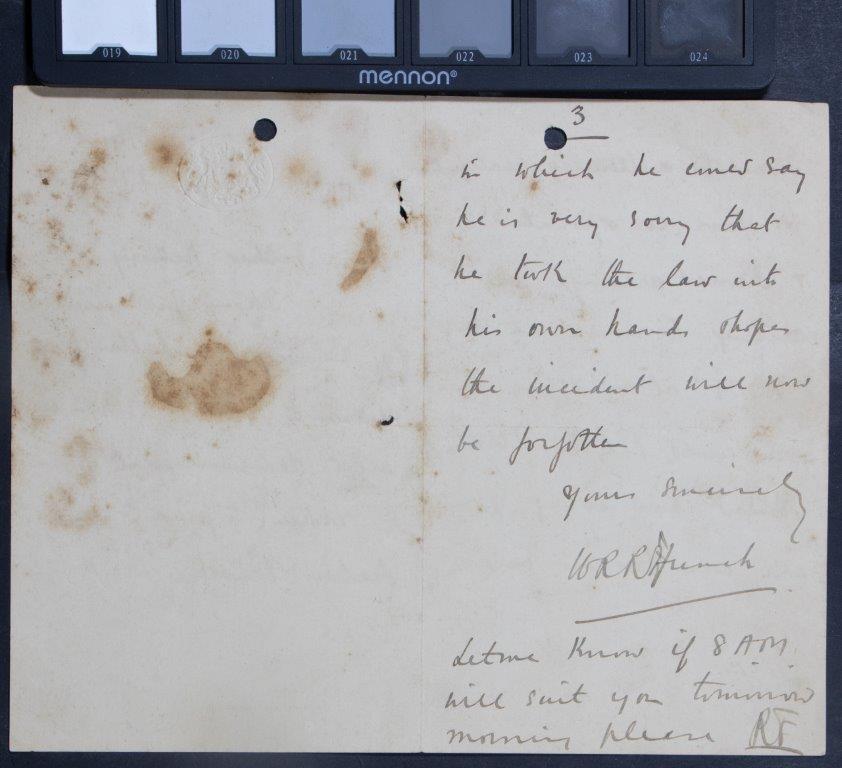 019 020 021 022 023 024
mennon®
3
in which he could say
he is very sorry that
he took the law into
his own hands & hopes
the incident will now
be forgotten
Yours sincerely
French
Let me know if 8 AM.
will suit you tomorrow
morning please RF